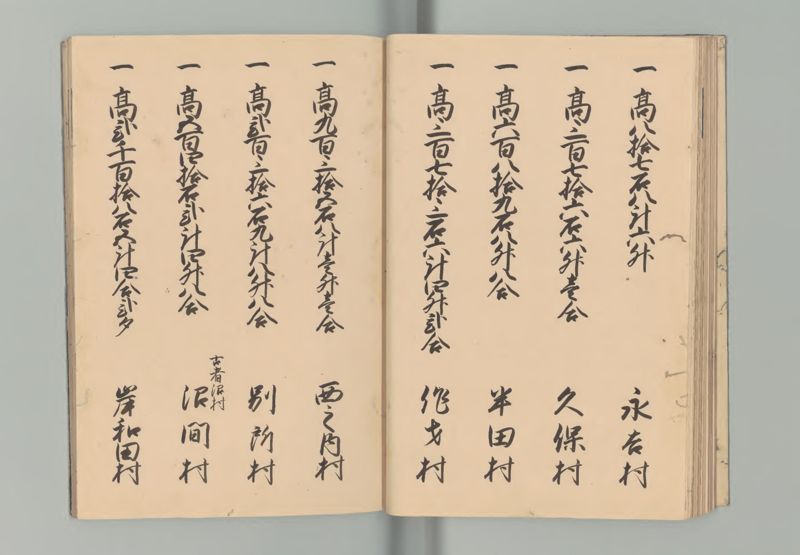 一高八拾七石八斗六升 永吉村
一高三百七拾六石六升壱合 久保村
一高六百八拾九石八升八合 半田村
一高三百七拾三石六斗四升弐合 作才村
一高九百三拾五石八斗壱升壱合 西之内村
一高弐百三拾六石九斗八升八合 別所村
古者沼村
一高五百四拾石弐斗四升八合 沼間村
一高弐千百拾八石五斗四合弐夕 岸和田村